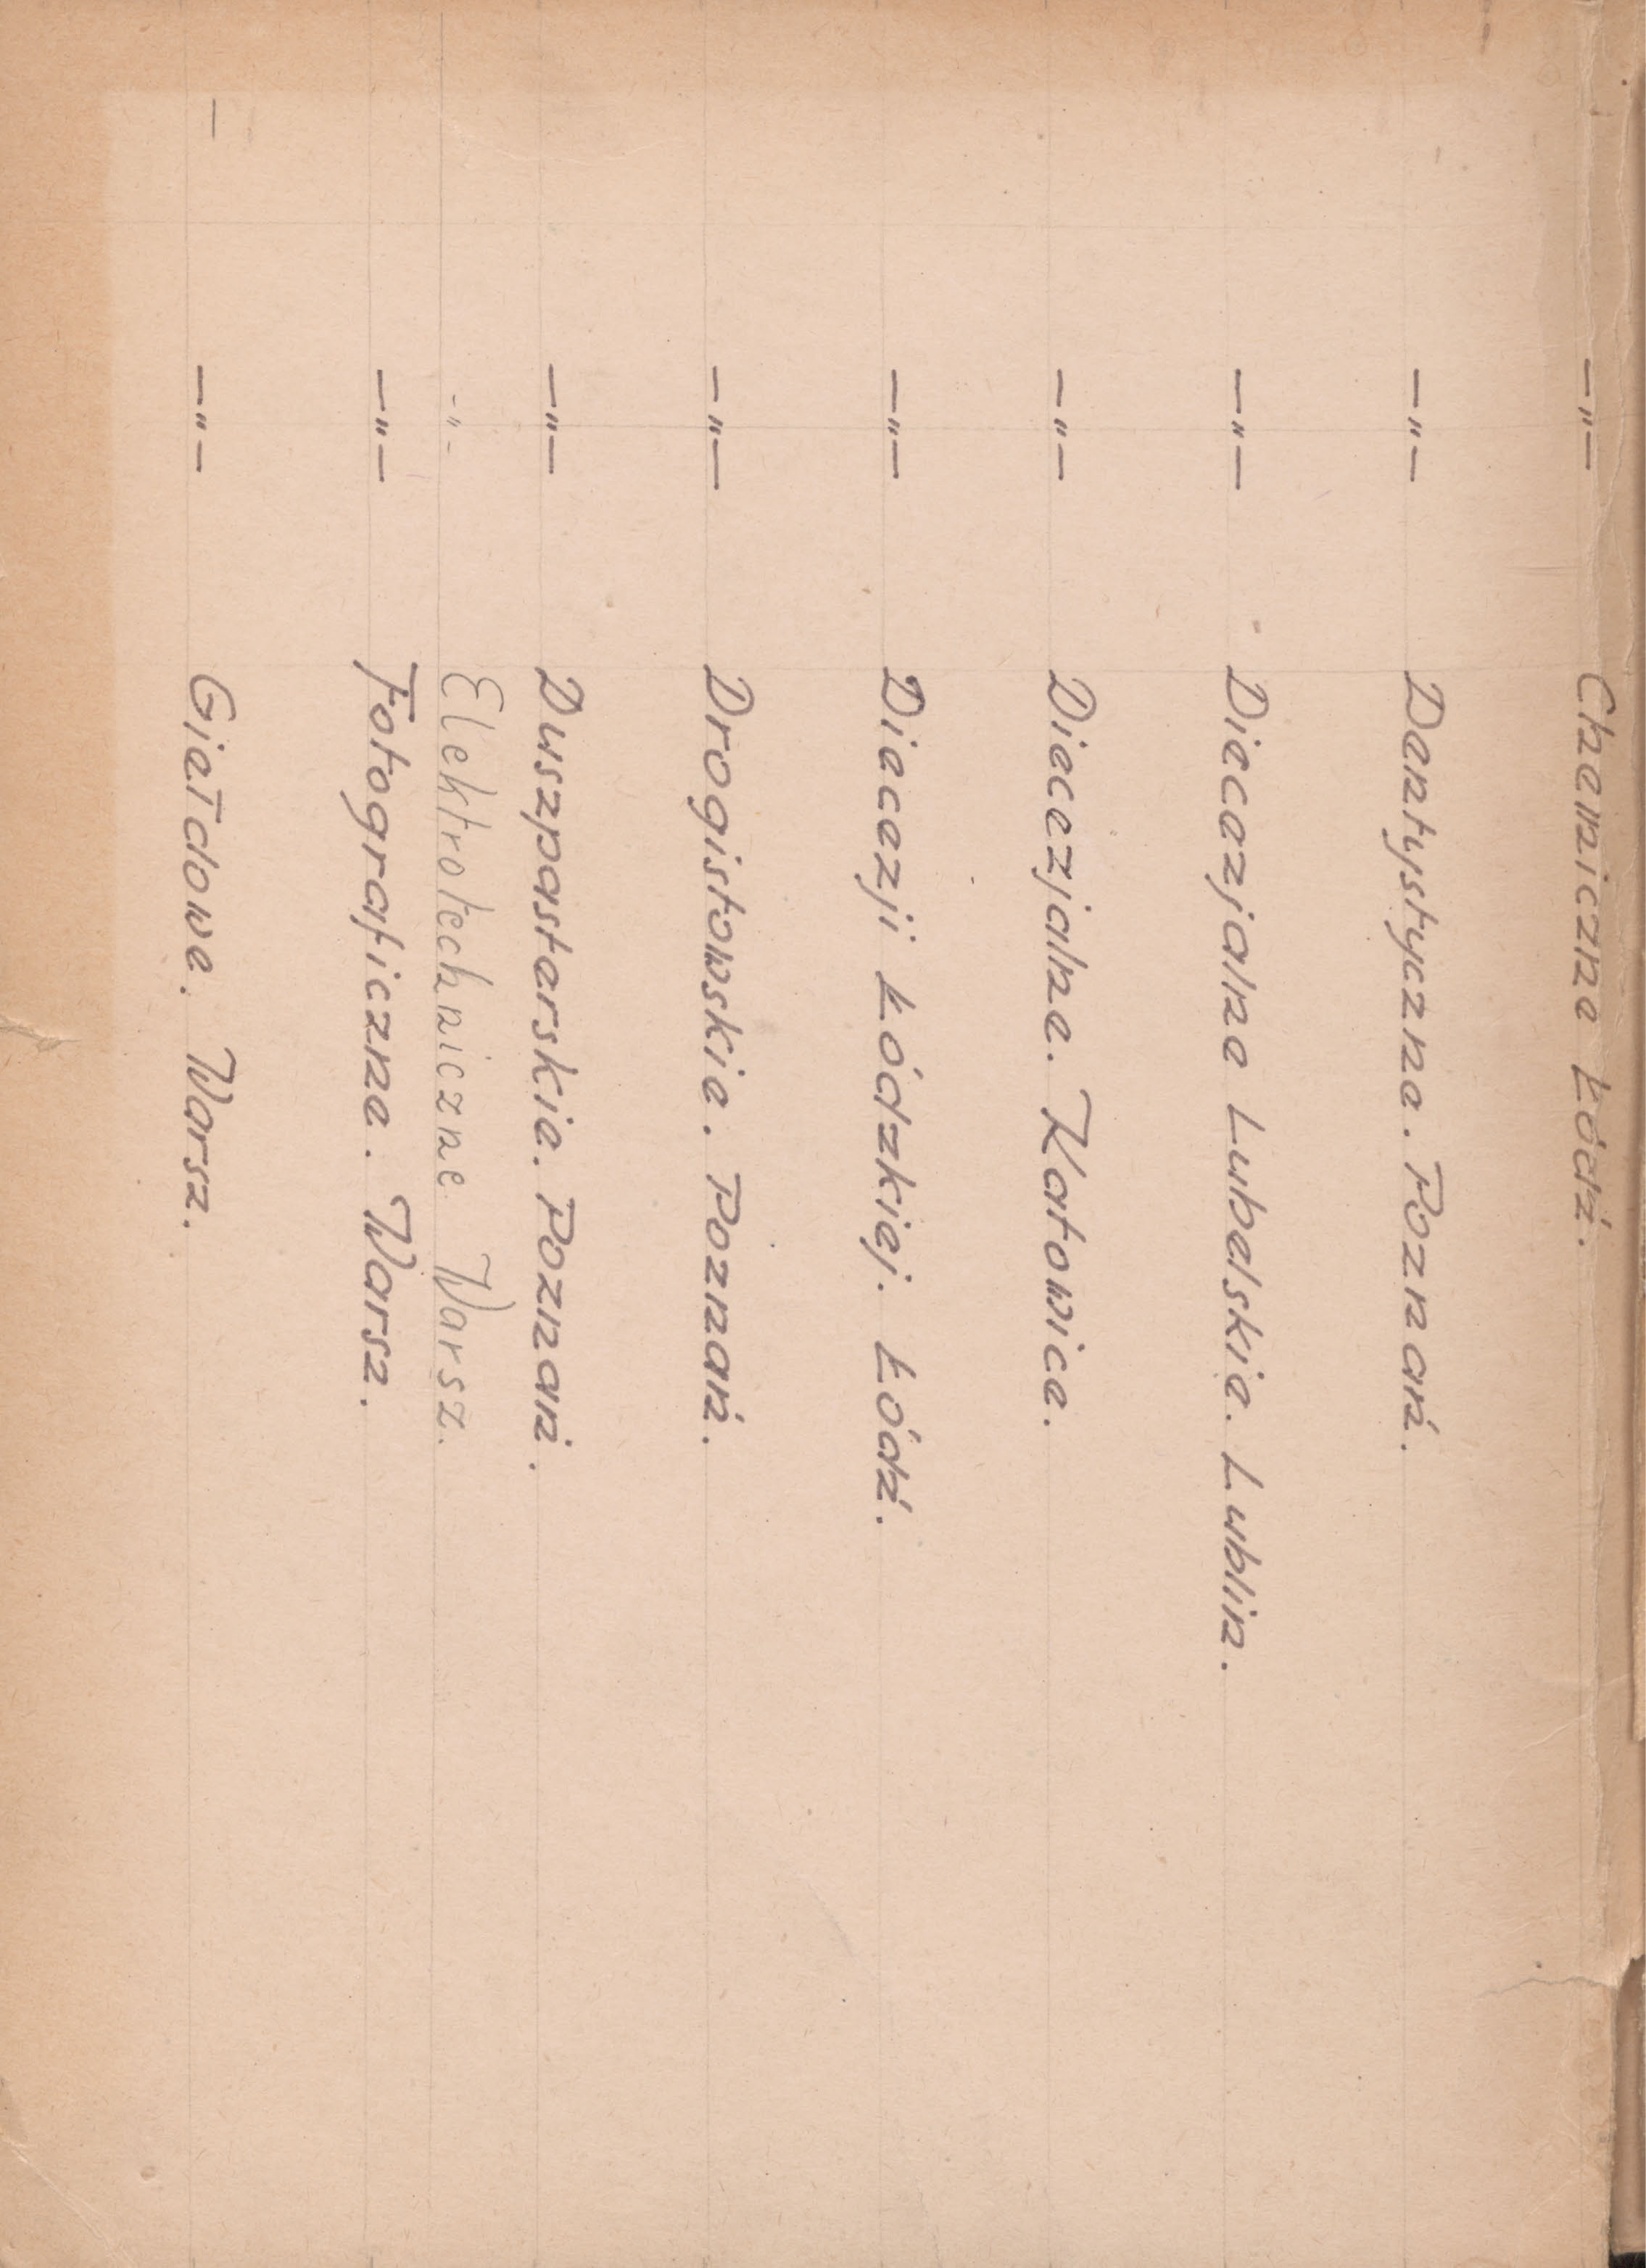 —"— Chemiczne Łódź.
—"— Dentystyczne. Poznań.
—"— Diecezjalne Lubelskie. Lublin.
—"— Diecezjalne. Katowice.
—"— Diecezji Łódzkiej. Łódź.
—"— Drogistowskie. Poznań.
—"— Duszpasterskie. Poznań.
-"- Elektrotechniczne Warsz.
—"— Fotograficzne. Warsz.
— —"— Giełdowe. Warsz.